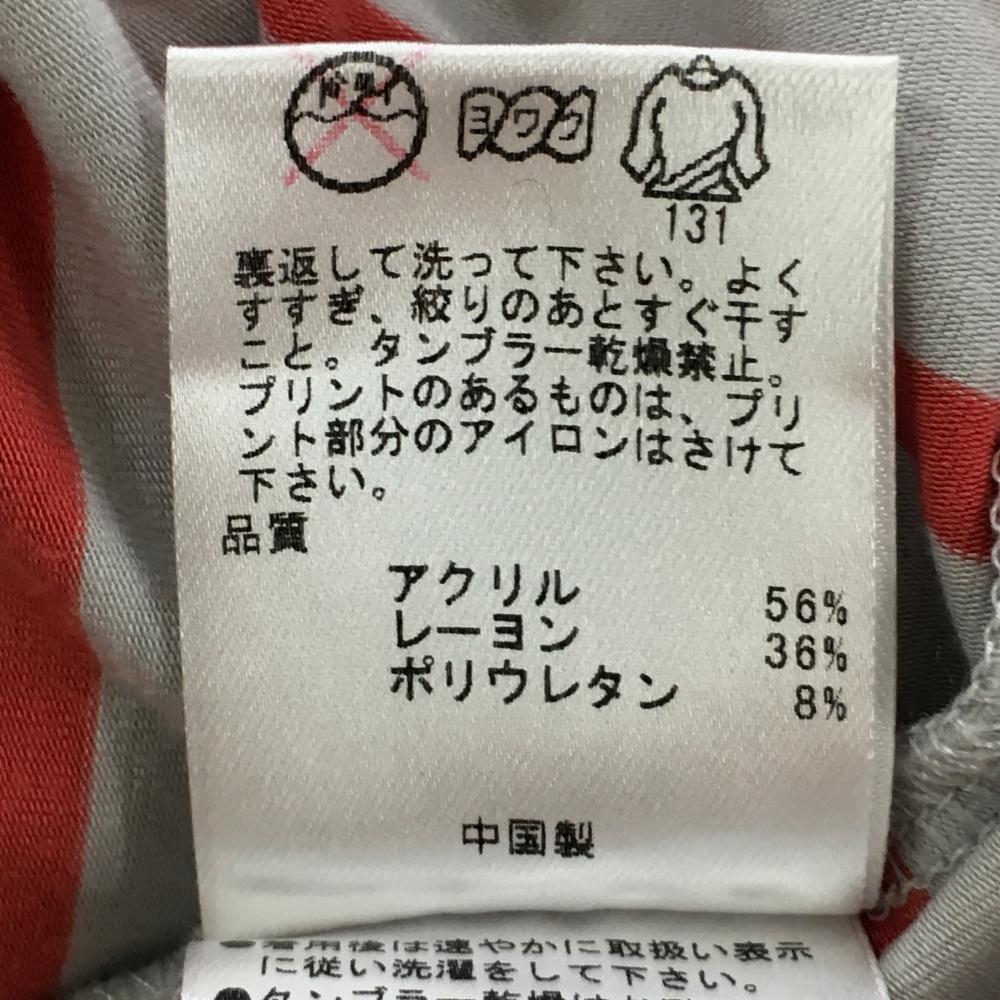 ドライ ヨワク
131
裏返して洗って下さい。よく
すすぎ、絞りのあとすぐ干す
こと。タンブラー乾燥禁止。
プリントのあるものは、プリ
ント部分のアイロンはさけて
下さい。
品質
アクリル 56%
レーヨン 36%
ポリウレタン 8%
中国製
●着用後は速やかに取扱い表示
に従い洗濯をして下さい。
●タンブラー乾燥は